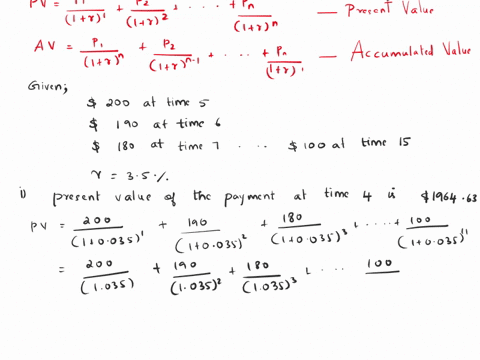 PV = P1/(1+r)^1 + P2/(1+r)^2 + . . . + Pn/(1+r)^n — Present Value
AV = P1/(1+r)^n + P2/(1+r)^n-1 + . . . + Pn/(1+r)^1 — Accumulated Value
Given;
$ 200 at time 5
$ 190 at time 6
$ 180 at time 7 . . . $ 100 at time 15
r = 3.5 %
i) present value of the payment at time 4 is $1964.63
PV = 200/(1+0.035)^1 + 190/(1+0.035)^2 + 180/(1+0.035)^3 + . . . + 100/(1+0.035)^11
= 200/(1.035) + 190/(1.035)^2 + 180/(1.035)^3 + . . . 100